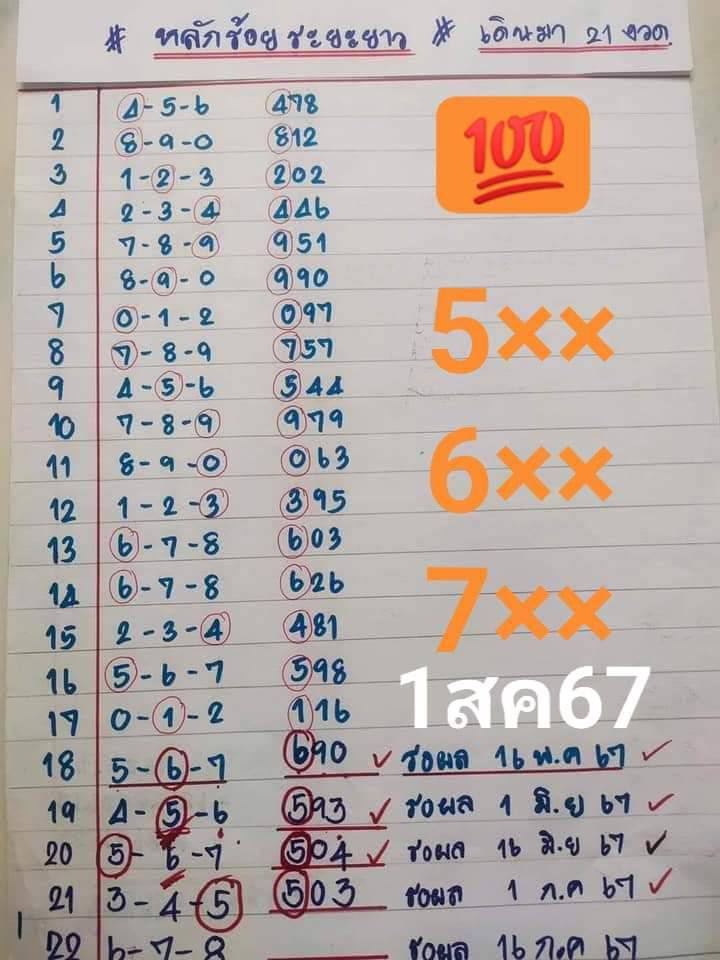 # หลักร้อย ระยะยาว # เดินมา 21 งวด
1 4-5-6 478
2 8-9-0 812
3 1-2-3 202
4 2-3-4 446
5 7-8-9 951
6 8-9-0 990
7 0-1-2 097
8 7-8-9 757
9 4-5-6 544
10 7-8-9 979
11 8-9-0 063
12 1-2-3 395
13 6-7-8 603
14 6-7-8 626
15 2-3-4 481
16 5-6-7 598
17 0-1-2 116
18 5-6-7 690 ✓ รอผล 16 พ.ค 67 ✓
19 4-5-6 593 ✓ รอผล 1 มิ.ย 67 ✓
20 5-6-7 504 ✓ รอผล 16 มิ.ย 67 ✓
21 3-4-5 503 รอผล 1 ก.ค 67 ✓
22 6-7-8 รอผล 16 ก.ค 67
100
5××
6××
7××
1สค67